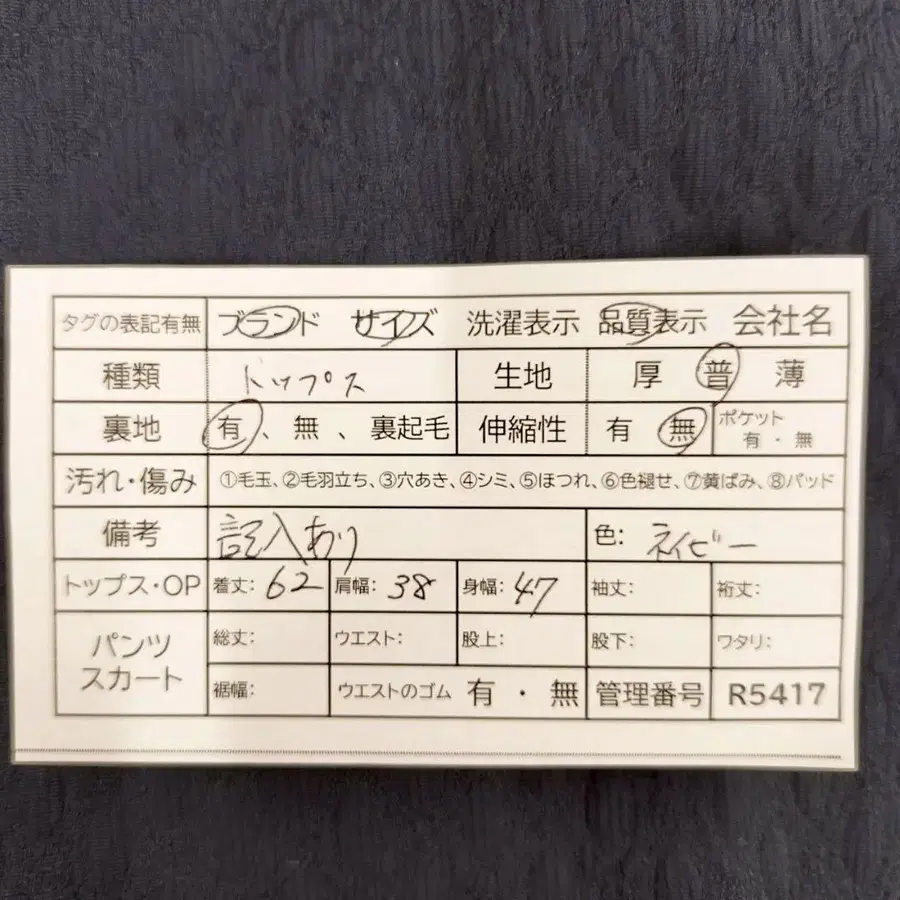 タグの表記有無 ブランド サイズ 洗濯表示 品質表示 会社名
種類 トップス 生地 厚 普 薄
裏地 有、無、裏起毛 伸縮性 有 無 ポケット 有・無
汚れ・傷み ①毛玉、②毛羽立ち、③穴あき、④シミ、⑤ほつれ、⑥色褪せ、⑦黄ばみ、⑧パッド
備考 記入あり 色: ネイビー
トップス・OP 着丈: 62 肩幅: 38 身幅: 47 袖丈: 裄丈:
パンツ スカート 総丈: ウエスト: 股上: 股下: ワタリ:
裾幅: ウエストのゴム 有・無 管理番号 R5417